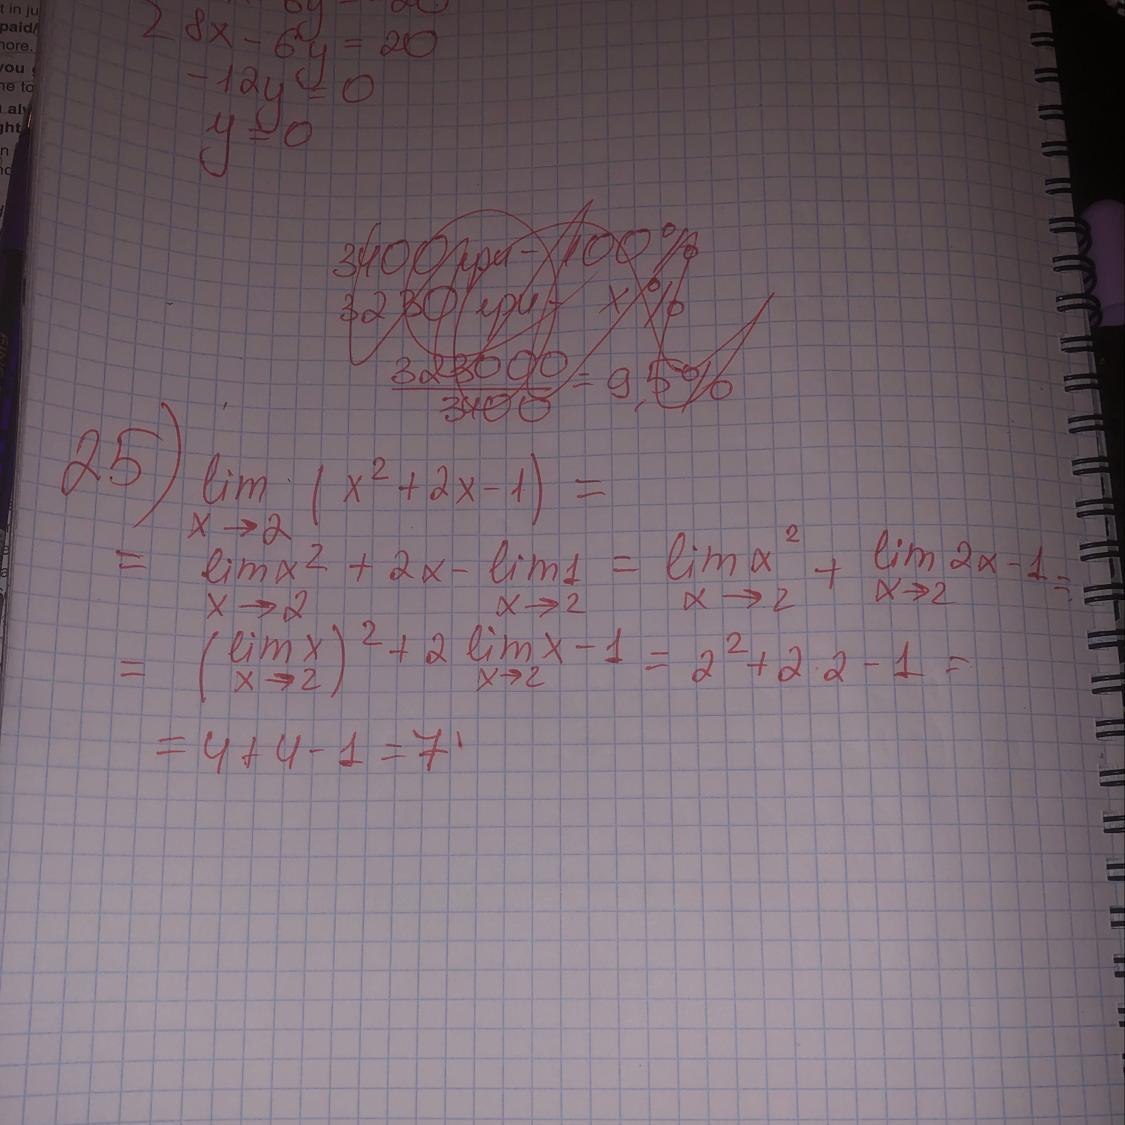 t in ju
paid/
nore.
you
ne to
ght
8x - 6y = 20
-12y = 0
y = 0
3400 грн - 100%
3230 грн - x%
323000/3400 = 9,5%
25) lim x→2 (x² + 2x - 1) =
= lim x→2 x² + 2x - lim x→2 1 = lim x→2 x² + lim x→2 2x - 1 =
= (lim x→2 x)² + 2 lim x→2 x - 1 = 2² + 2·2 - 1 =
= 4 + 4 - 1 = 7